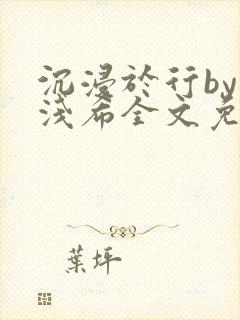 沉浸於行by
浅希全文免
葉坪